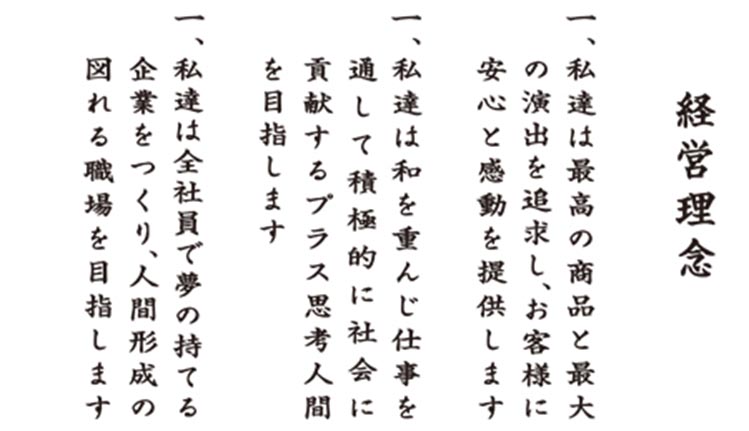 経営理念
一、私達は最高の商品と最大
の演出を追求し、お客様に
安心と感動を提供します
一、私達は和を重んじ仕事を
通して積極的に社会に
貢献するプラス思考人間
を目指します
一、私達は全社員で夢の持てる
企業をつくり、人間形成の
図れる職場を目指します